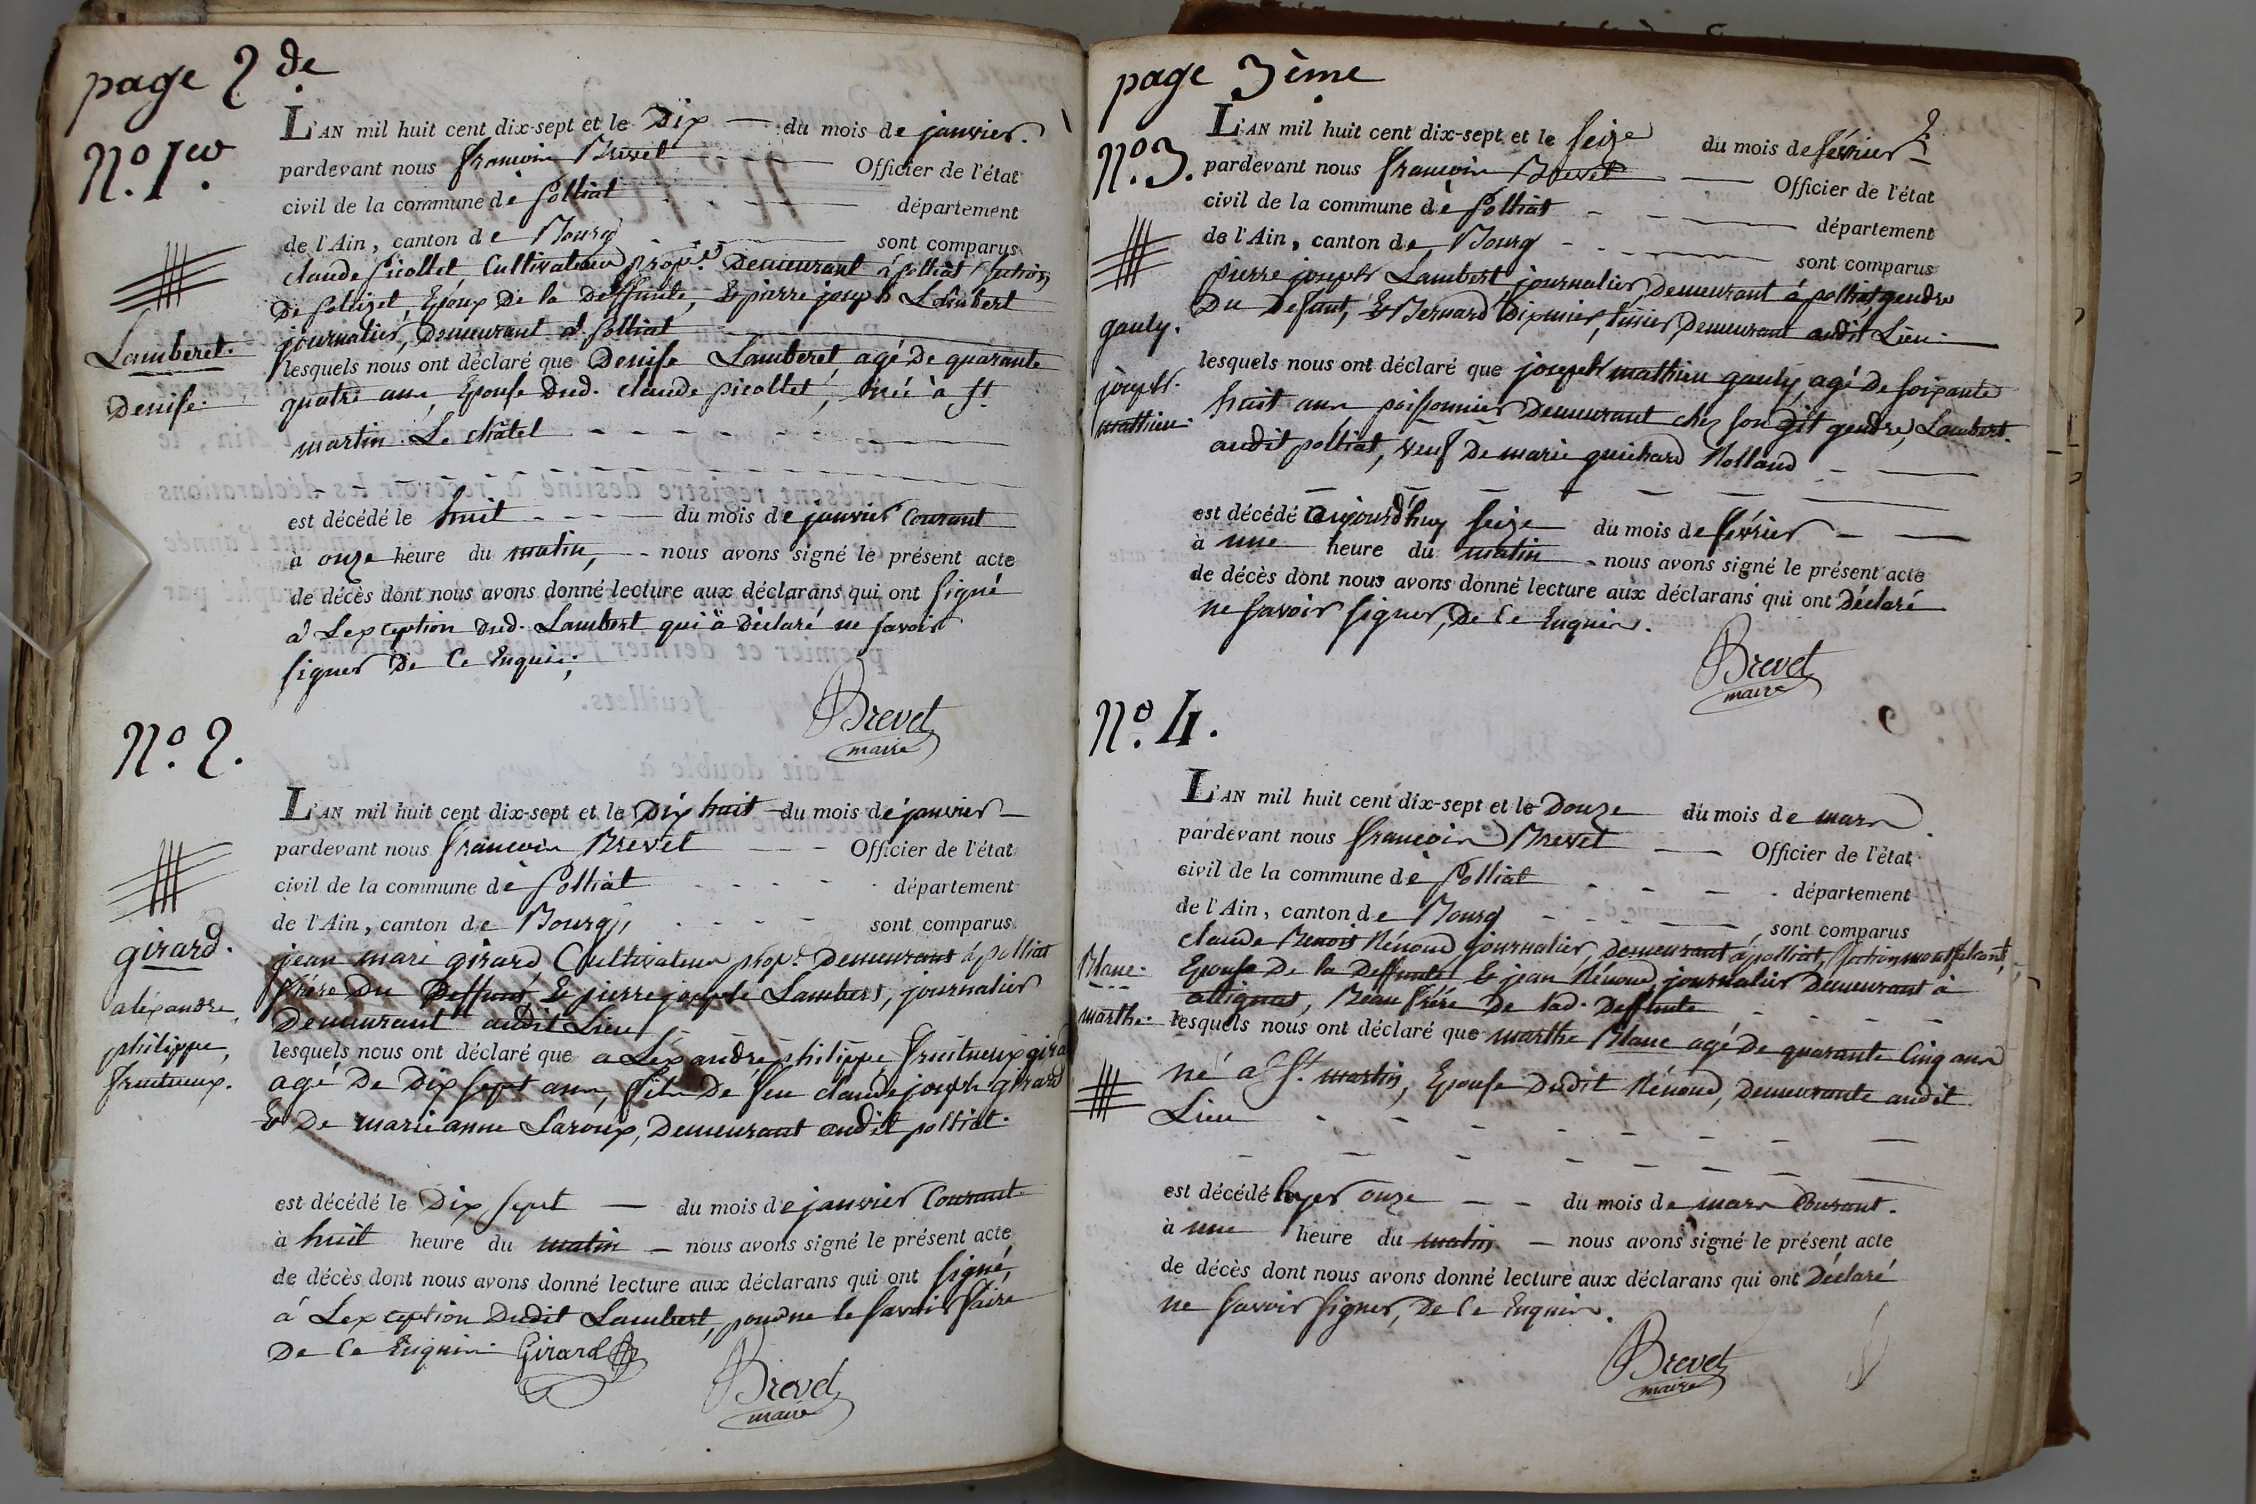 page 2 de
N.º 1er.
L'AN mil huit cent dix-sept et le Dix du mois de janvier.
pardevant nous françois Brevet Officier de l'état
civil de la commune de Polliat département
de l'Ain, canton de Bourg sont comparus
claude picollet Cultivateur prop.re Demeurant à polliat, section
De , Epoux De la Deffunte, & pierre joseph Lambert
journalier, Demeurant à Polliat
Lamberet.
lesquels nous ont déclaré que Denise Lamberet, agé De quarante
Denise.
quatre ans, Epouse dud. claude picollet, née à St.
martin Le châtel
est décédé le huit du mois de janvier Courant
à onze heure du matin, nous avons signé le présent acte
de décès dont nous avons donné lecture aux déclarans qui ont signé
à Lexception dud. Lambert qui à Déclaré ne savoir
signer De Ce Enquis;
Brevet
maire
N.º 2.
L'AN mil huit cent dix-sept et le Dix huit du mois de janvier
pardevant nous françois Brevet Officier de l'état
civil de la commune de Polliat département
de l'Ain, canton de Bourg, sont comparus
girard.
jean marie girard Cultivateur prop.re Demeurant à polliat
frère Du Deffunt, & pierre joseph Lambert, journalier
aléxandre,
Demeurant audit Lieu
philippe,
lesquels nous ont déclaré que aLéxandre, philippe, fructueux gira
fructueux.
agé De Dix sept ans, fils De feu claude joseph girard
& De marie anne Laroux, Demeurant audit polliat.
est décédé le Dix sept du mois de janvier Courant
à huit heure du matin nous avons signé le présent acte
de décès dont nous avons donné lecture aux déclarans qui ont signé,
à Lexception Dudit Lambert, pour ne le savoir faire
De Ce Enquis. Girard
Brevet
maire
page 3ème
N.º 3.
L'AN mil huit cent dix-sept et le seize du mois de février
pardevant nous françois Brevet Officier de l'état
civil de la commune de Polliat département
de l'Ain, canton de Bourg sont comparus
pierre joseph Lambert journalier, Demeurant à polliat, gendre
gauly.
Du Defunt, & Bernard Dixmier, tissier, Demeurant audit Lieu.
joseph.
lesquels nous ont déclaré que joseph mathieu gauly, agé De soixante
mathieu.
huit ans poissonnier Demeurant chez son dit gendre, Lambert.
audit polliat, veuf De marie guichard Rolland
est décédé aujourd'huy seize du mois de février
à une heure du matin nous avons signé le présent acte
de décès dont nous avons donné lecture aux déclarans qui ont Déclaré
ne savoir signer, De Ce Enquis.
Brevet
maire
N.º 4.
L'AN mil huit cent dix-sept et le Douze du mois de mars
pardevant nous françois Brevet Officier de l'état
civil de la commune de Polliat département
de l'Ain, canton de Bourg sont comparus
claude Benoit Rénoud journalier, demeurant à polliat, section montfalcont,
Blanc.
Epouse De la Deffunte & jean Rénoud, journalier Demeurant à
attignat, Beau frère De lad. Deffunte
marthe.
lesquels nous ont déclaré que marthe Blanc agé De quarante Cinq ans
né à St. martin, Epouse Dudit Rénoud, Demeurante audit
Lieu
est décédé hyer onze du mois de mars Courant.
à une heure du matin nous avons signé le présent acte
de décès dont nous avons donné lecture aux déclarans qui ont Déclaré
ne savoir signer, De Ce Enquis.
Brevet
maire